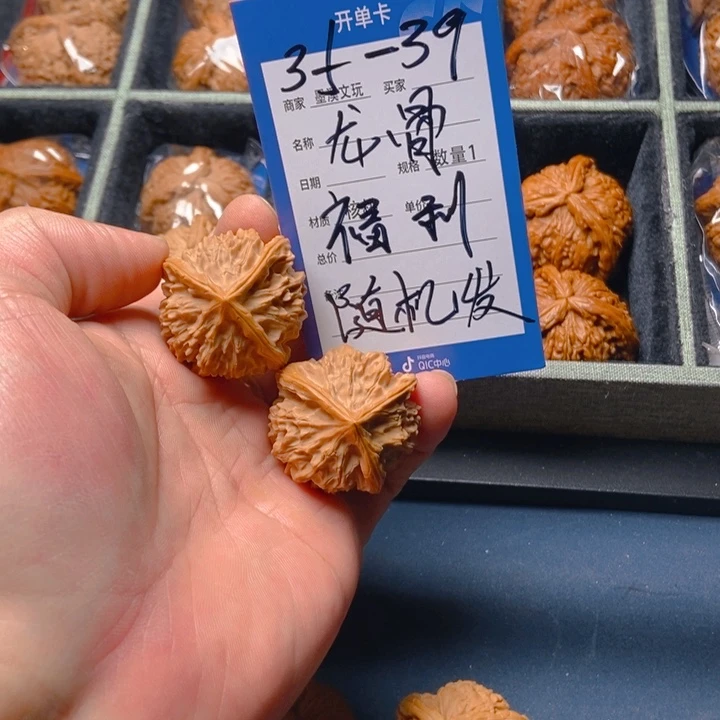 开单卡
35-39
商家 墨溪文玩 买家
名称 龙骨
日期 规格 数量1
材质 核桃 单价
福利
总价
随机发
抖音电商
QIC中心